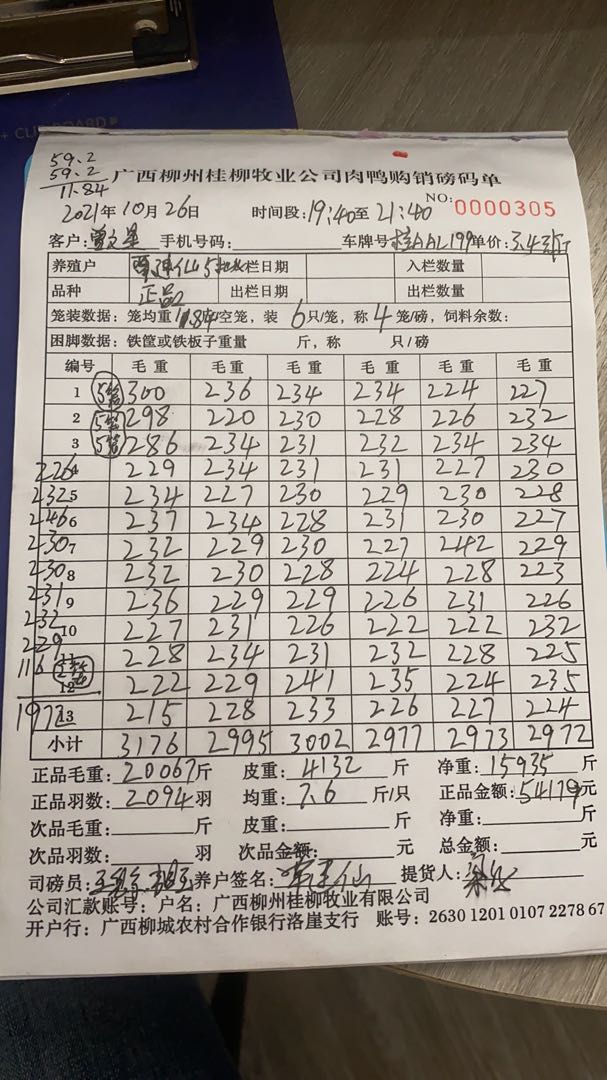 + CLIPBOARD
59.2
59.2
11.84
广西柳州桂柳牧业公司肉鸭购销磅码单
2021年10月26日 时间段:19:40至21:40 NO: 0000305
客户: 手机号码: 车牌号桂AAL199 单价:3.4
养殖户 5批 入栏日期 入栏数量
品种 正品 出栏日期 出栏数量
笼装数据:笼均重11.84 空笼,装6只/笼,称4笼/磅,饲料余数:
困脚数据:铁筐或铁板子重量 斤,称 只/磅
编号 毛重 毛重 毛重 毛重 毛重 毛重
1 5笼 300 236 234 234 224 227
2 5笼 298 220 230 228 226 232
3 5笼 286 234 231 232 234 234
226 4 229 234 231 231 227 230
232 5 234 227 230 229 230 228
246 6 237 234 228 231 230 227
230 7 232 229 230 227 242 229
230 8 232 230 228 224 228 223
231 9 236 229 229 226 231 226
232 10 227 231 226 222 222 232
229 11 228 234 231 232 228 225
116 12 222 229 241 235 224 235
1972 13 215 228 233 226 227 224
小计 3176 2995 3002 2977 2973 2972
正品毛重:20067斤 皮重:4132斤 净重:15935斤
正品羽数:2094羽 均重:7.6斤/只 正品金额:54179元
次品毛重: 斤 皮重: 斤 净重: 斤
次品羽数: 羽 次品金额: 元 总金额: 元
司磅员: 养户签名: 提货人:
公司汇款账号:户名:广西柳州桂柳牧业有限公司
开户行:广西柳城农村合作银行洛崖支行 账号:2630 1201 0107 2278 67